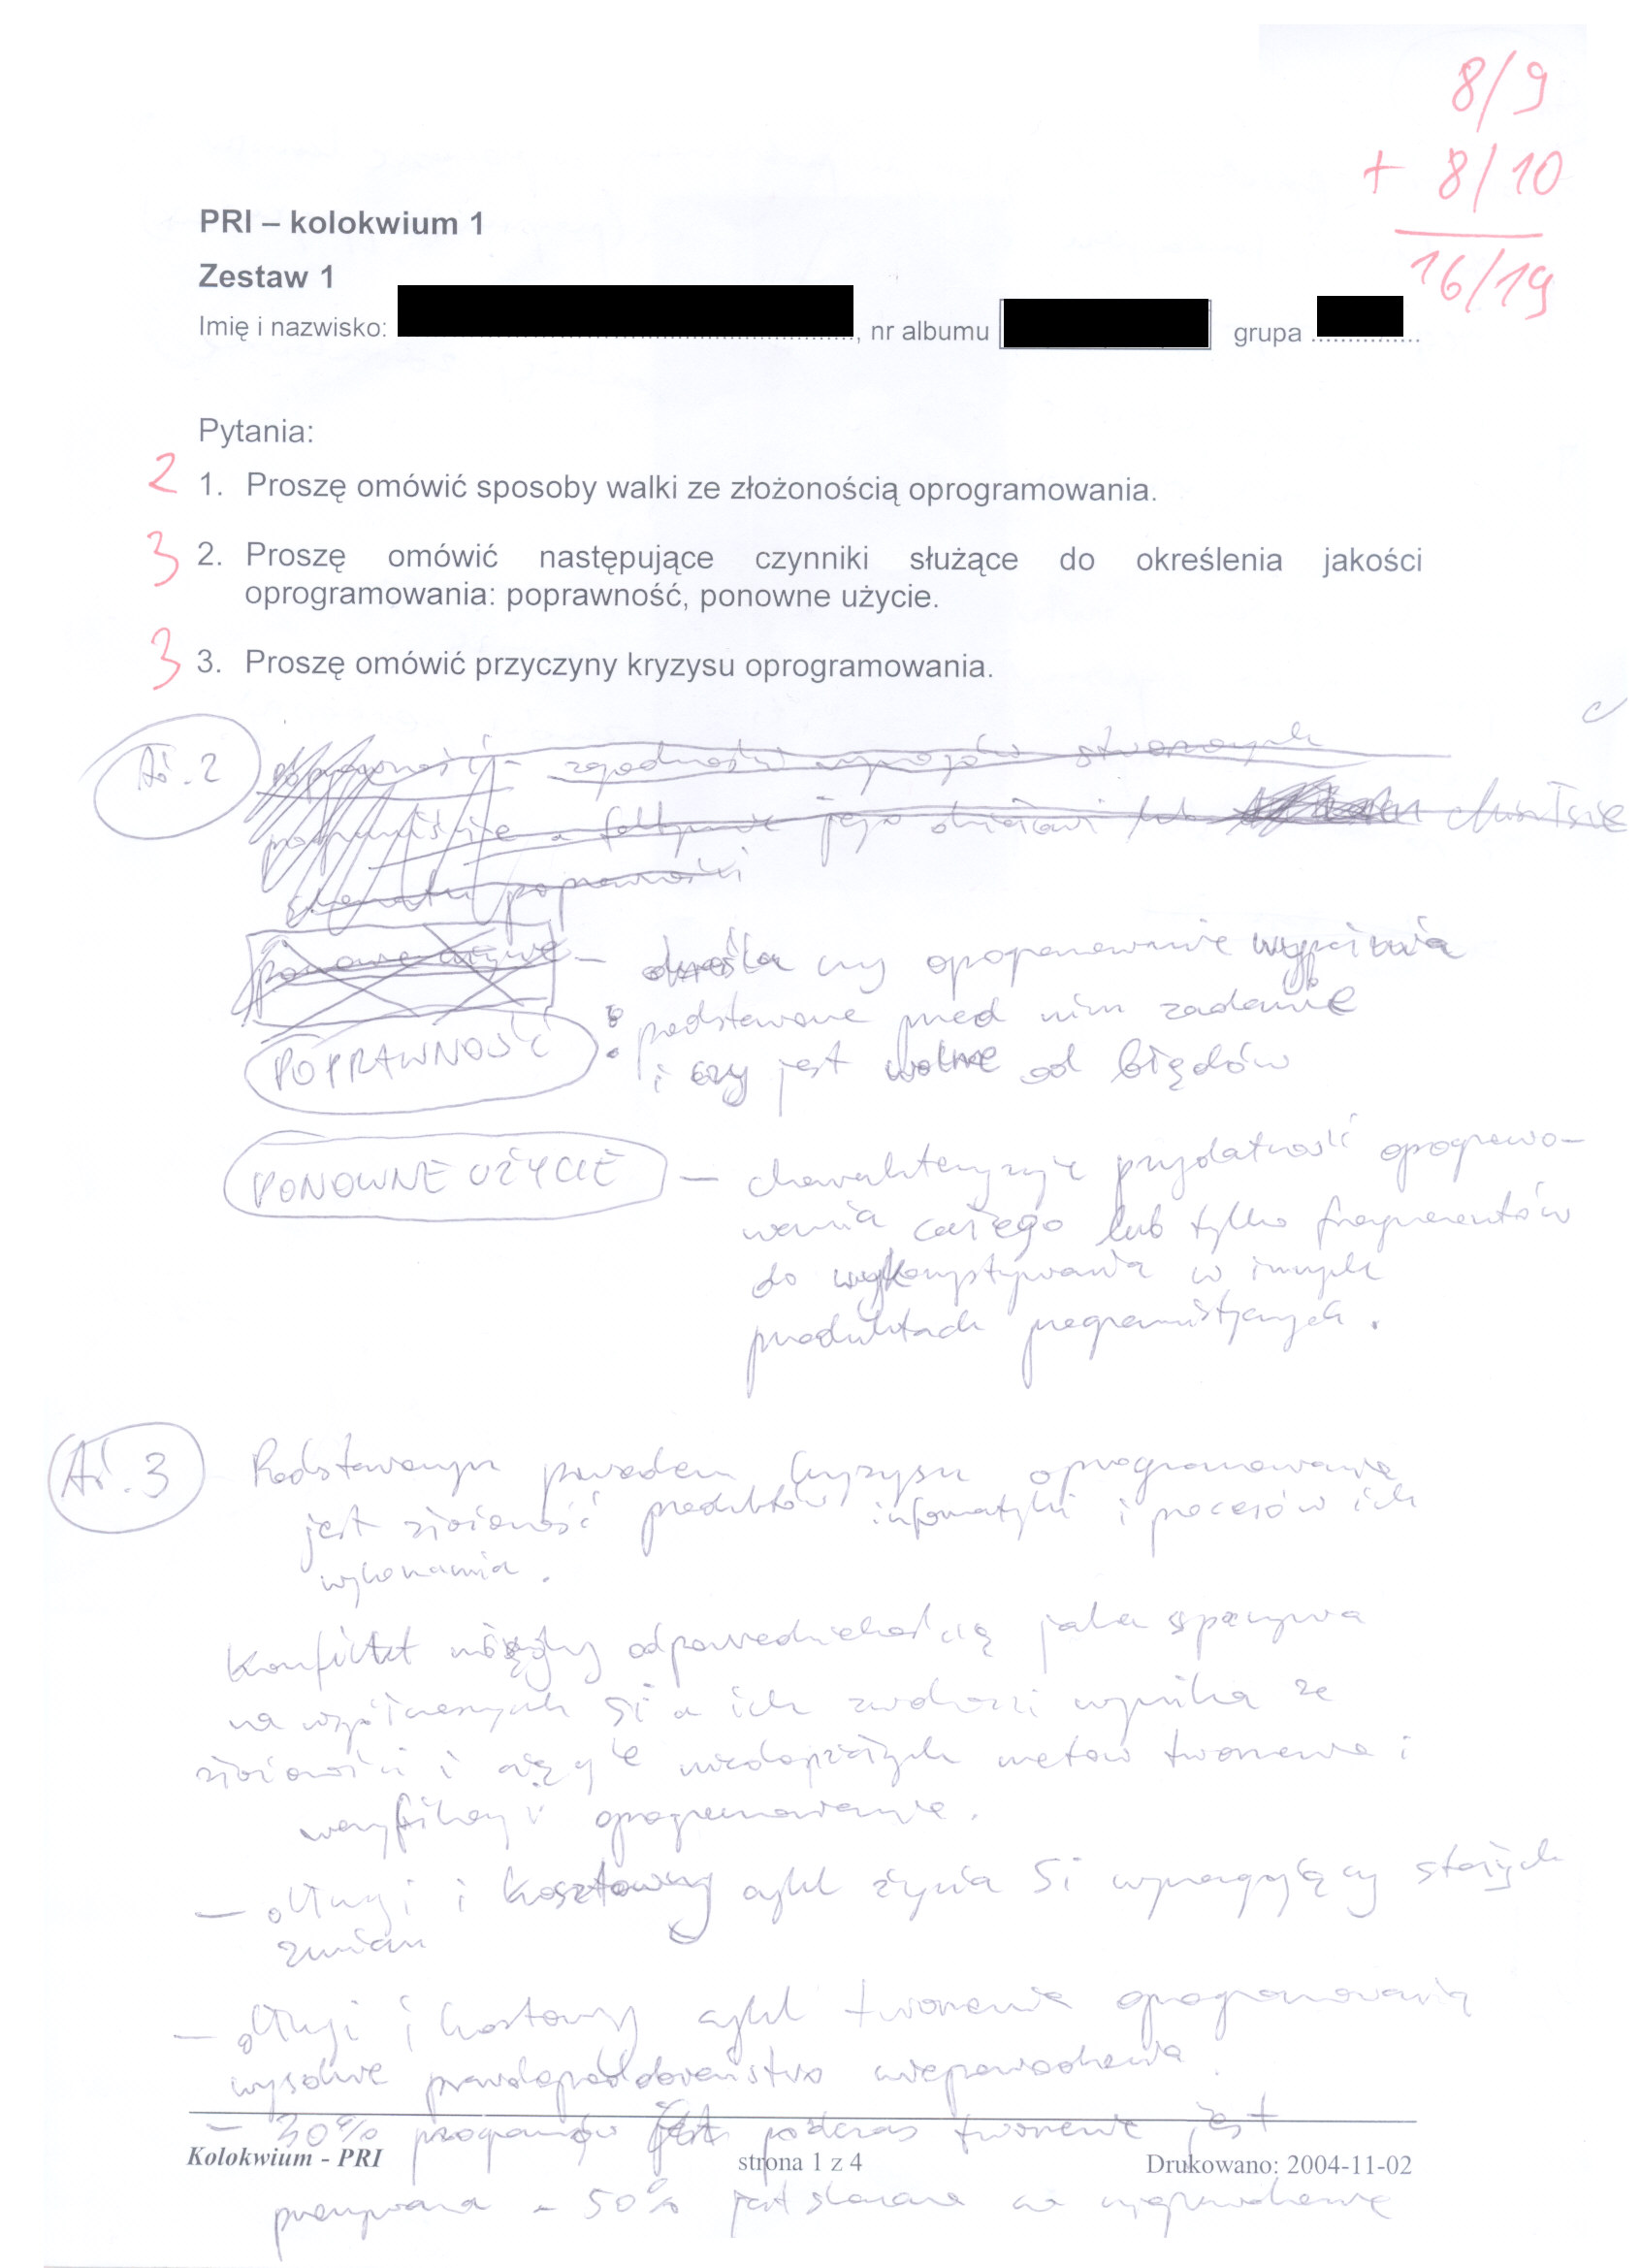 8/9
+ 8/10
16/19
PRI – kolokwium 1
Zestaw 1
Imię i nazwisko: , nr albumu grupa
Pytania:
2 1. Proszę omówić sposoby walki ze złożonością oprogramowania.
3 2. Proszę omówić następujące czynniki służące do określenia jakości
oprogramowania: poprawność, ponowne użycie.
3 3. Proszę omówić przyczyny kryzysu oprogramowania.
ponowne użycie – określa czy oprogramowanie wypełnia
POPRAWNOŚĆ : postawione przed nim zadanie
i czy jest wolne od błędów
PONOWNE UŻYCIE – charakteryzuje przydatność oprogramo-
wania całego lub tylko fragmentów
do wykorzystywania w innych
produktach programistycznych.
Podstawowym powodem kryzysu oprogramowania
jest złożoność produktów informatyki i procesów ich
wykonania.
Konflikt między odpowiedzialnością jaka spoczywa
na współczesnych SI a ich zawodności wynika ze
złożoności i niedojrzałych metod tworzenia i
weryfikacji oprogramowania.
– długi i kosztowny cykl życia SI wymagający stałych
zmian
– długi i kosztowny cykl tworzenia oprogramowania
wysokie prawdopodobieństwo niepowodzenia
– 30% programów podczas tworzenia jest
Kolokwium - PRI strona 1 z 4 Drukowano: 2004-11-02
przerywana – 50% jest skazane na niepowodzenie